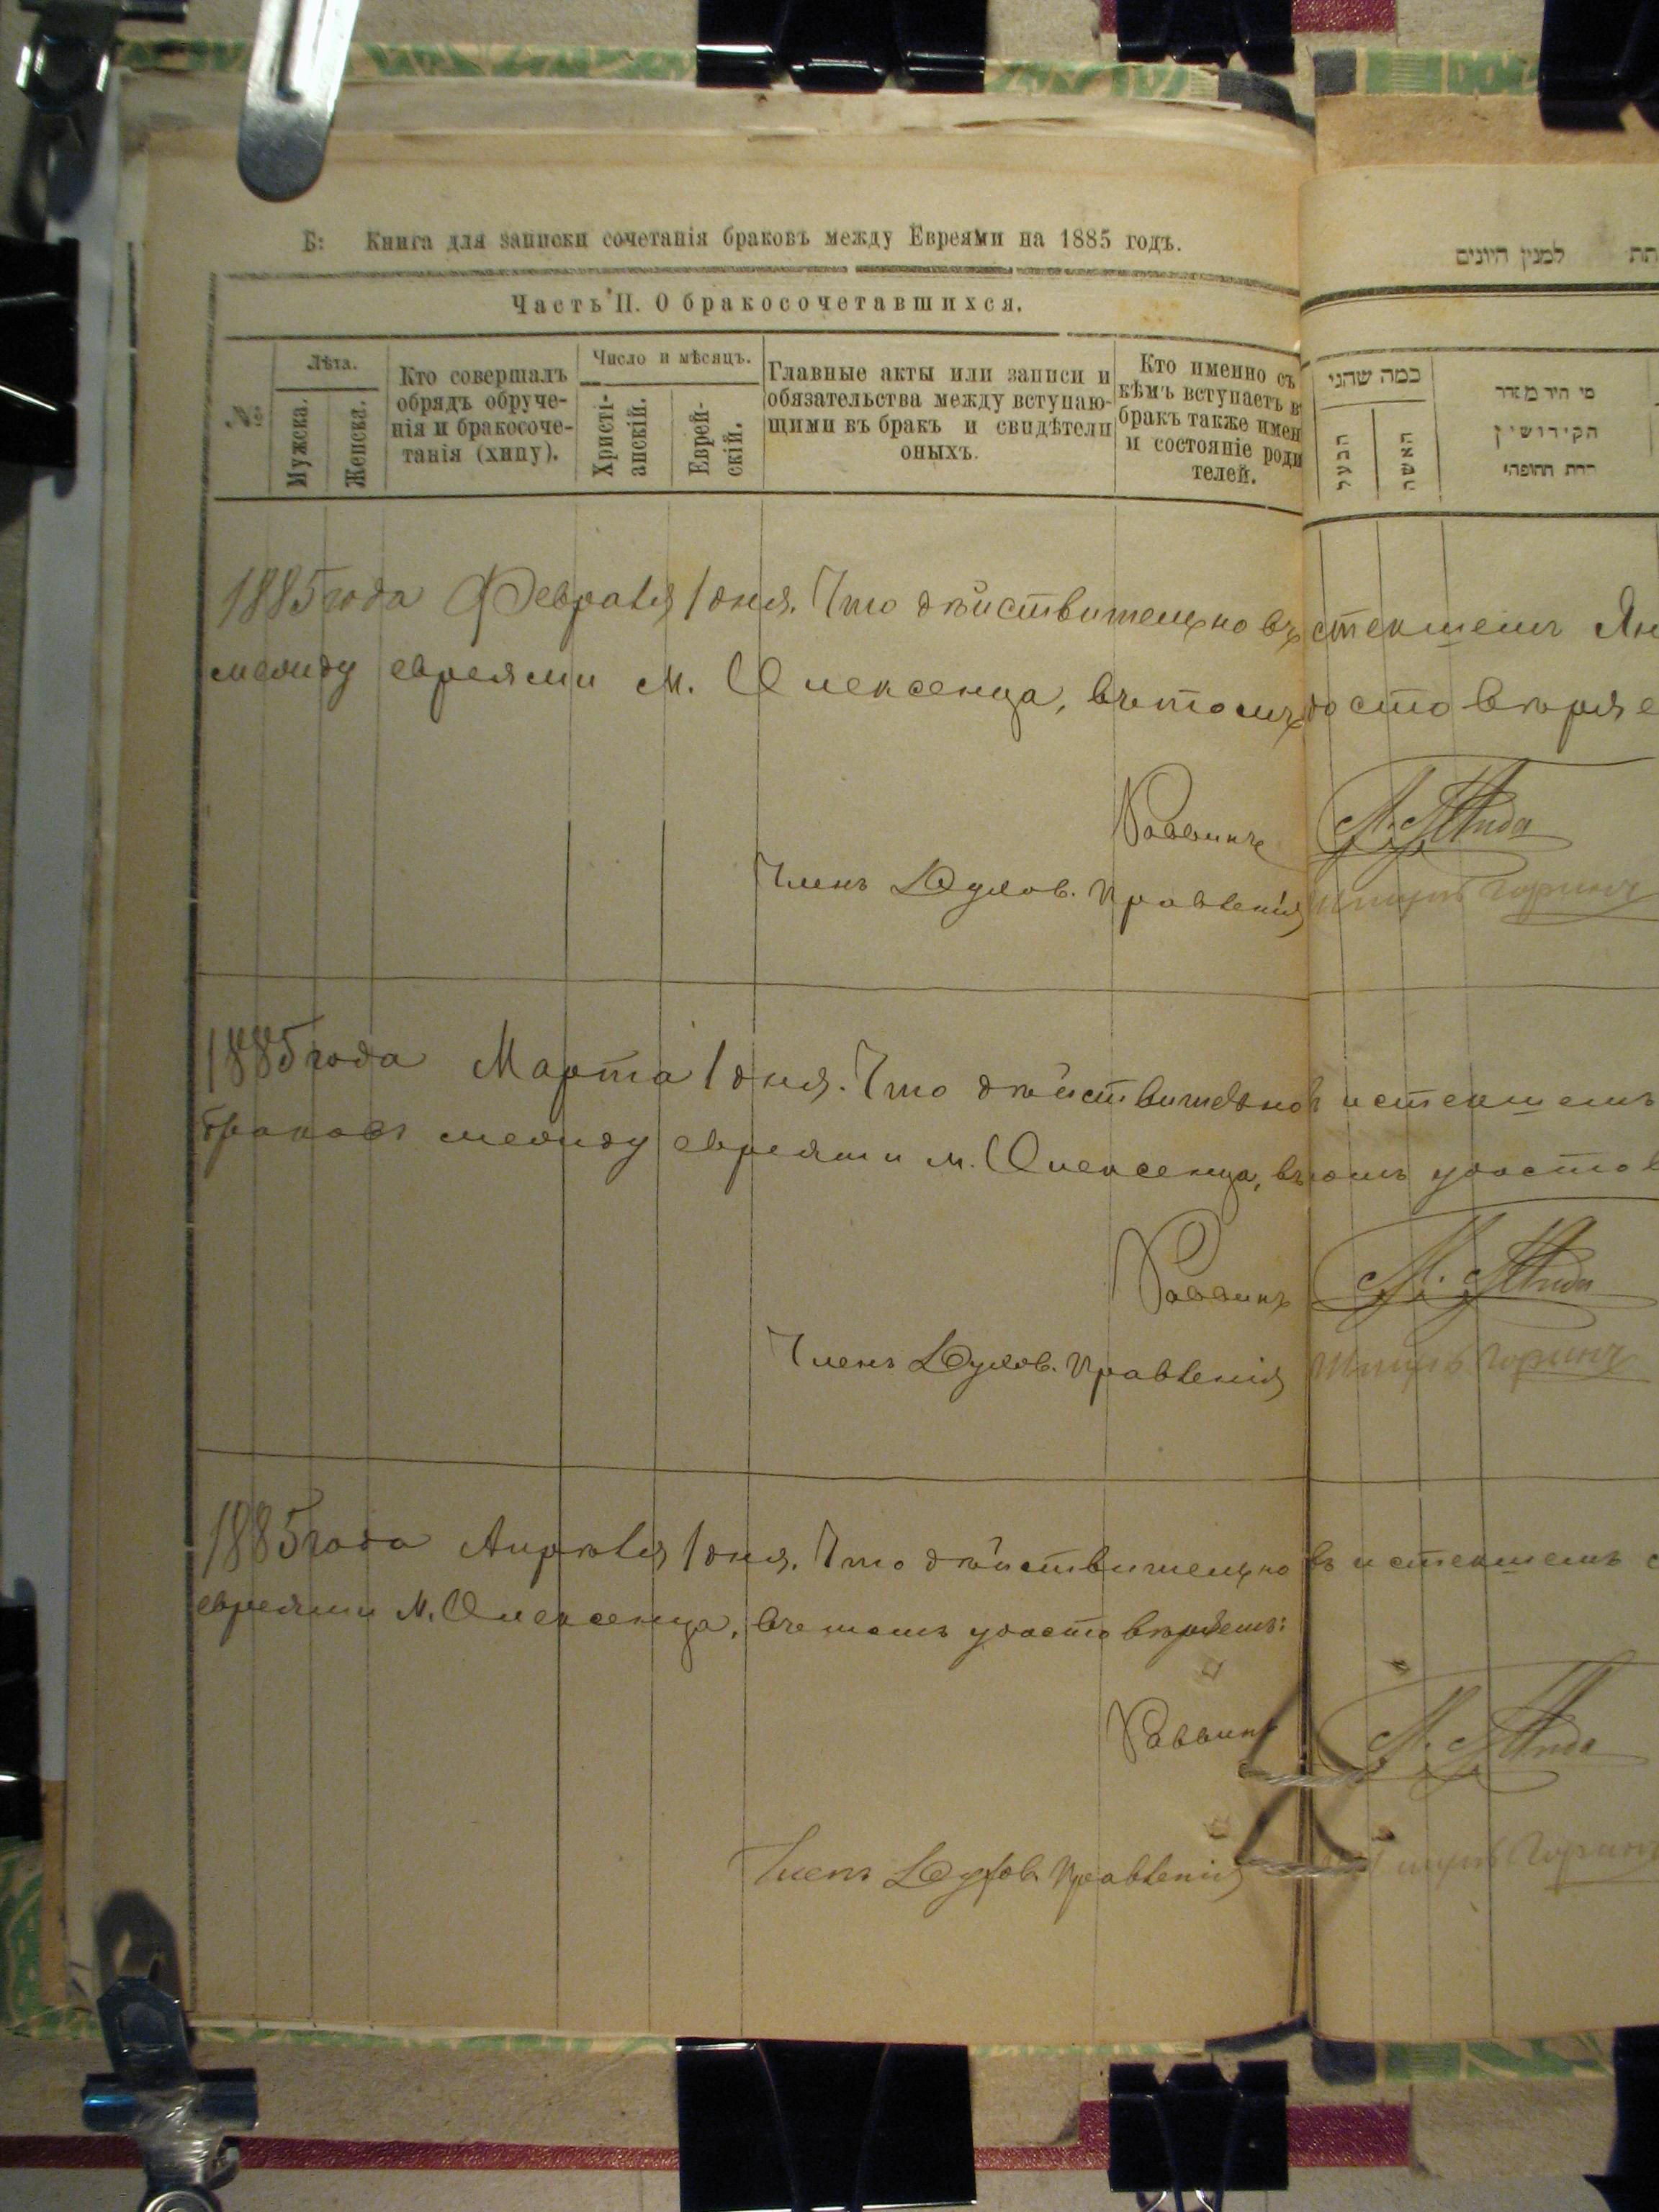 Б: Книга для записки сочетанія браковъ между Евреями на 1885 годъ.
למנין היונים
Часть II. О бракосочетавшихся.
№
Лѣта.
Мужска.
Женска.
Кто совершалъ
обрядъ обруче-
нія и бракосоче-
танія (хипу).
Число и мѣсяцъ.
Христі-
анскій.
Еврей-
скій.
Главные акты или записи и
обязательства между вступаю-
щими въ бракъ и свидѣтели
оныхъ.
Кто именно съ
кѣмъ вступаетъ в
бракъ также имен
и состояніе роди
телей.
כמה שהני
הבעל
האשה
הקידושין
1885 года Февраля 1 дня. Что дѣйствительно въ истекшемъ Ян
между евреями м. Олексенца, въ томъ удостовѣряе
Раввинъ
Членъ Духов. Правленія
1885 года Марта 1 дня. Что дѣйствительно въ истекшемъ
браковъ между евреями м. Олексенца, въ томъ удостов
Раввинъ
Членъ Духов. Правленія
1885 года Апрѣля 1 дня. Что дѣйствительно въ истекшемъ
евреями м. Олексенца, въ томъ удостовѣряемъ:
Раввинъ
Членъ Духов. Правленія